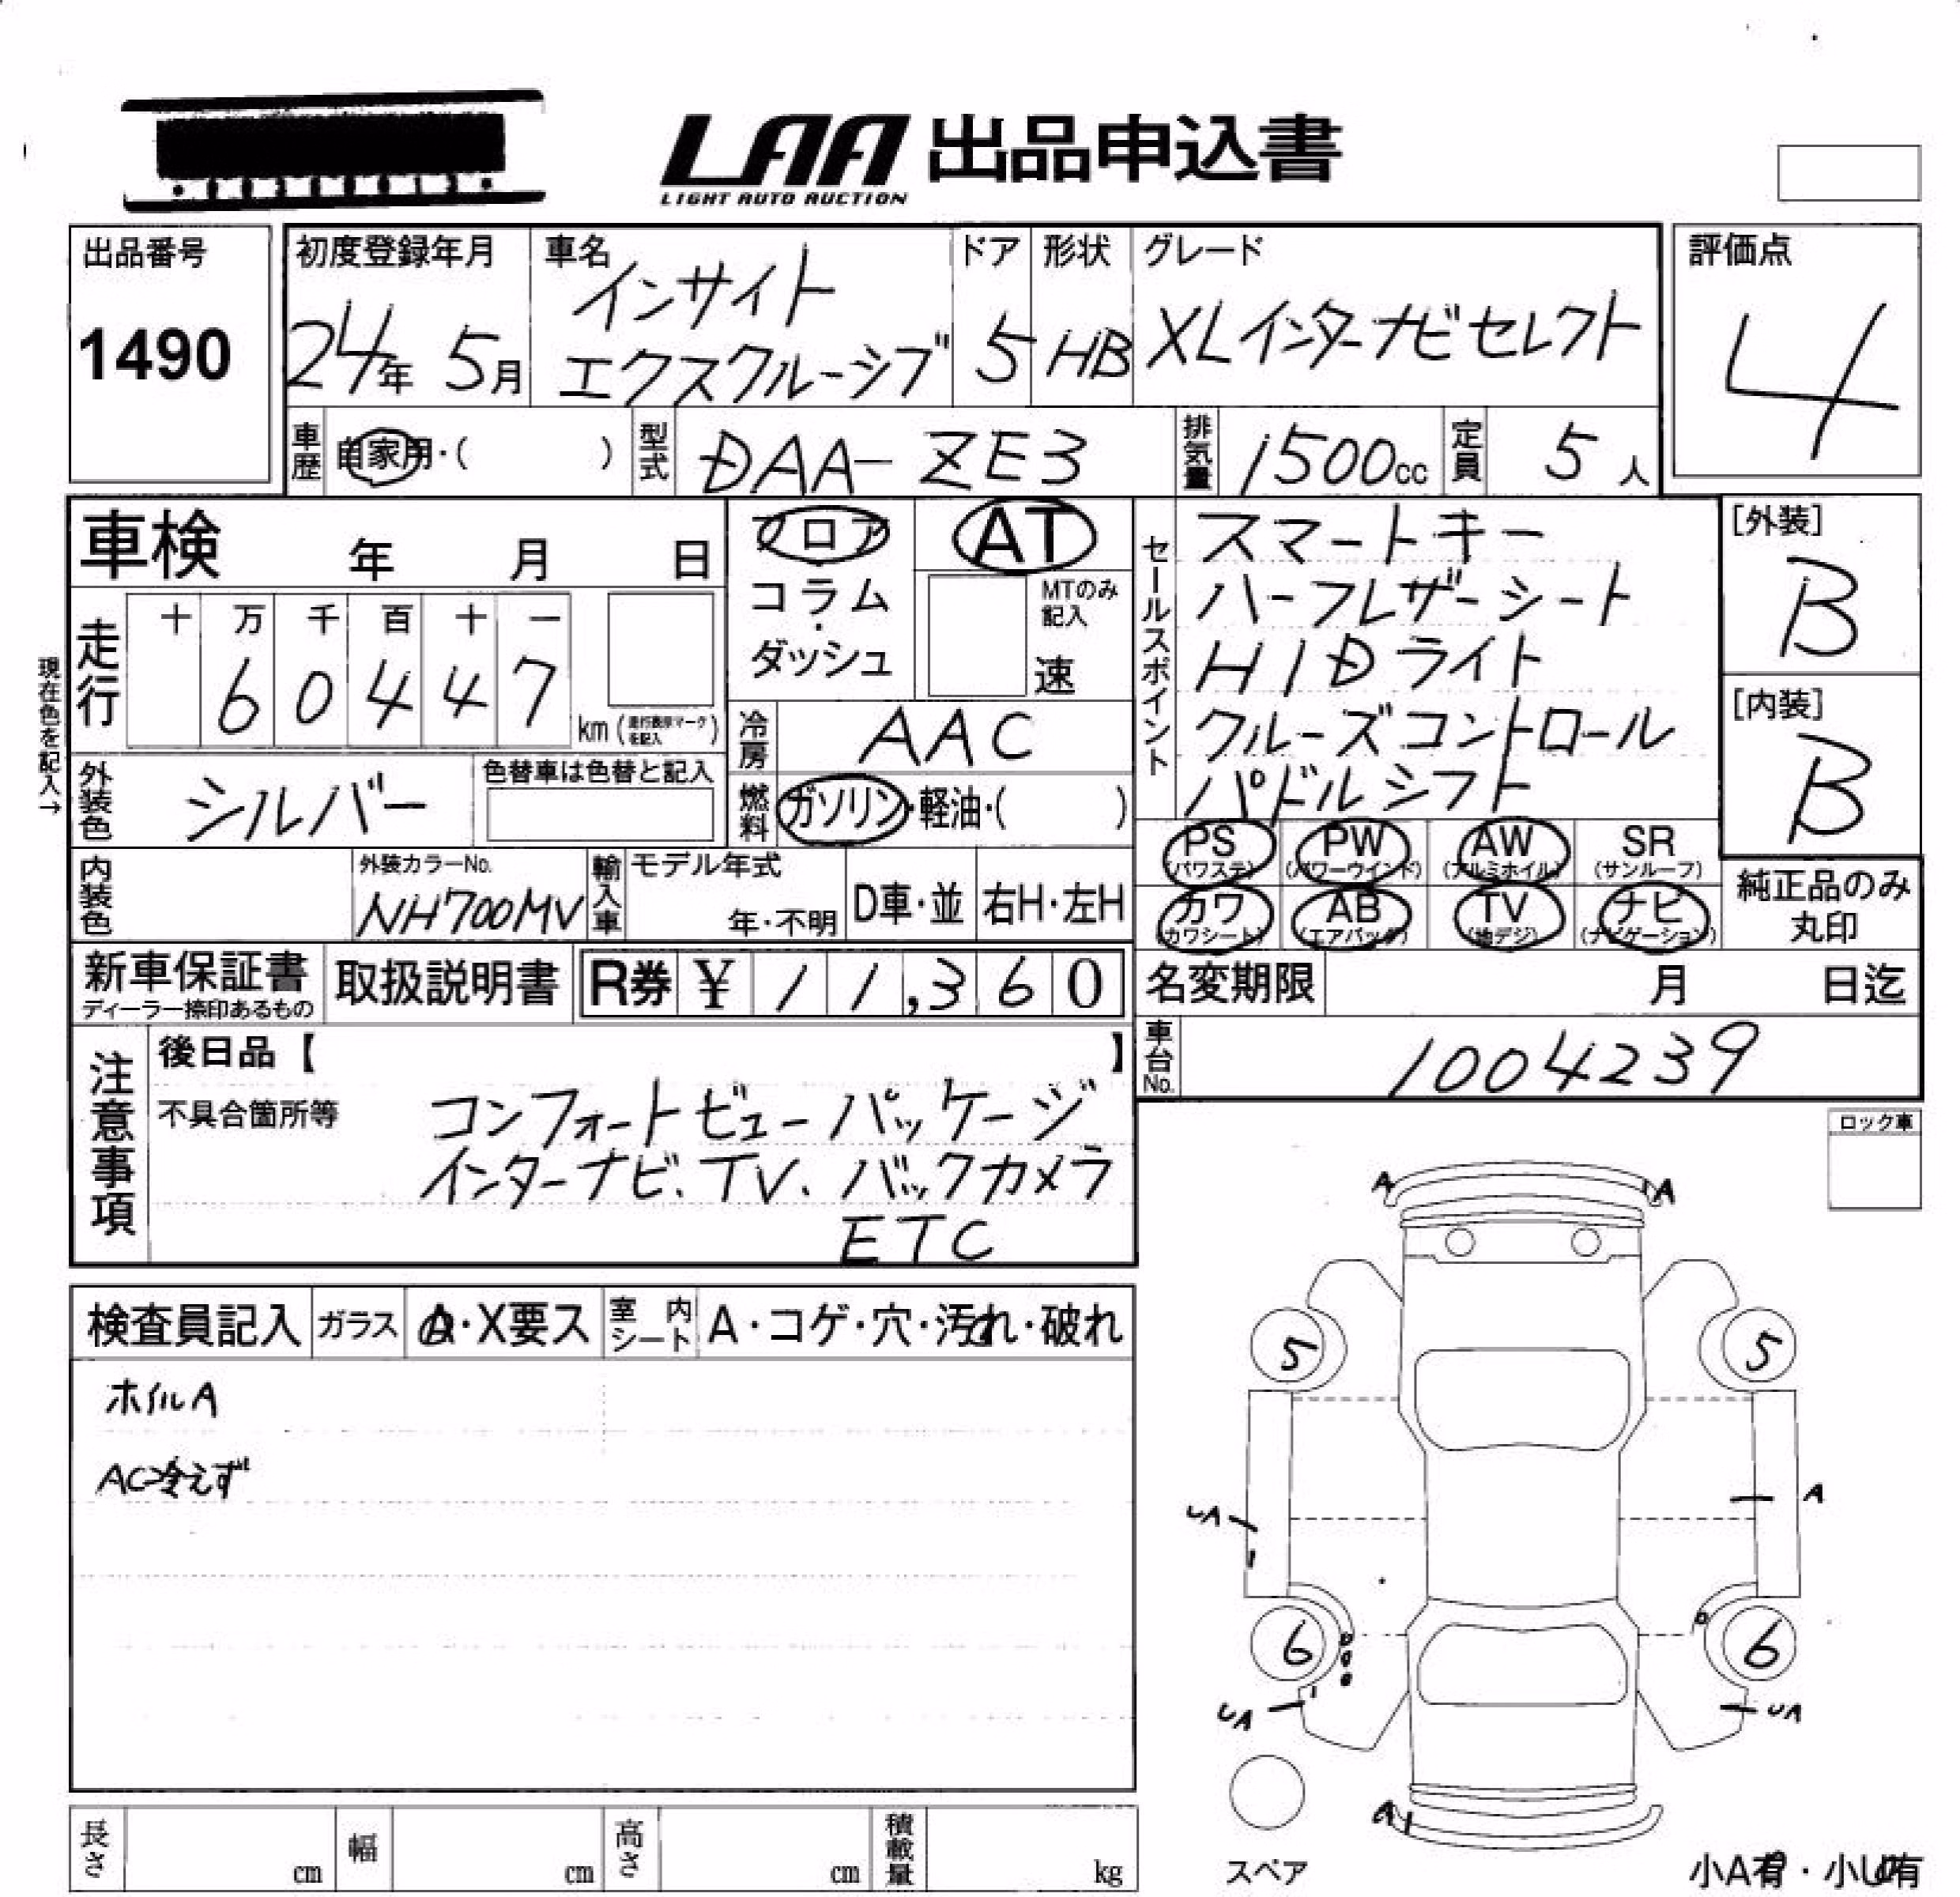 LAA 出品申込書
LIGHT AUTO AUCTION
出品番号
1490
初度登録年月
24年 5月
車名
インサイト
エクスクルーシブ
ドア
5
形状
HB
グレード
XLインターナビセレクト
評価点
4
車歴 自家用・( )
型式 DAA-ZE3
排気量 1500cc
定員 5人
車検 年 月 日
フロア
コラム
・
ダッシュ
AT
MTのみ
記入
速
セールスポイント
スマートキー
ハーフレザーシート
HIDライト
クルーズコントロール
パドルシフト
[外装]
B
[内装]
B
現在色を記入→
走行
十 万 千 百 十 一
6 0 4 4 7
km (走行表示マークを記入)
冷房 AAC
外装色 シルバー
色替車は色替と記入
燃料 ガソリン・軽油・( )
PS (パワステ)
PW (パワーウインド)
AW (アルミホイル)
SR (サンルーフ)
カワ (カワシート)
AB (エアバッグ)
TV (地デジ)
ナビ (ナビゲーション)
純正品のみ
丸印
内装色
外装カラーNo.
NH700MV
輸入車
モデル年式
年・不明
D車・並
右H・左H
新車保証書
ディーラー捺印あるもの
取扱説明書
R券 ¥ 11,360
名変期限 月 日迄
車台No. 1004239
注意事項
後日品【 】
不具合箇所等
コンフォートビューパッケージ
インターナビ、TV、バックカメラ
ETC
ロック車
検査員記入
ガラス A・X要ス
室内シート A・コゲ・穴・汚れ・破れ
ホイルA
AC冷えず
A A
5 5
UA A
6 6
UA UA
A
スペア
長さ cm
幅 cm
高さ cm
積載量 kg
小A有・小U有